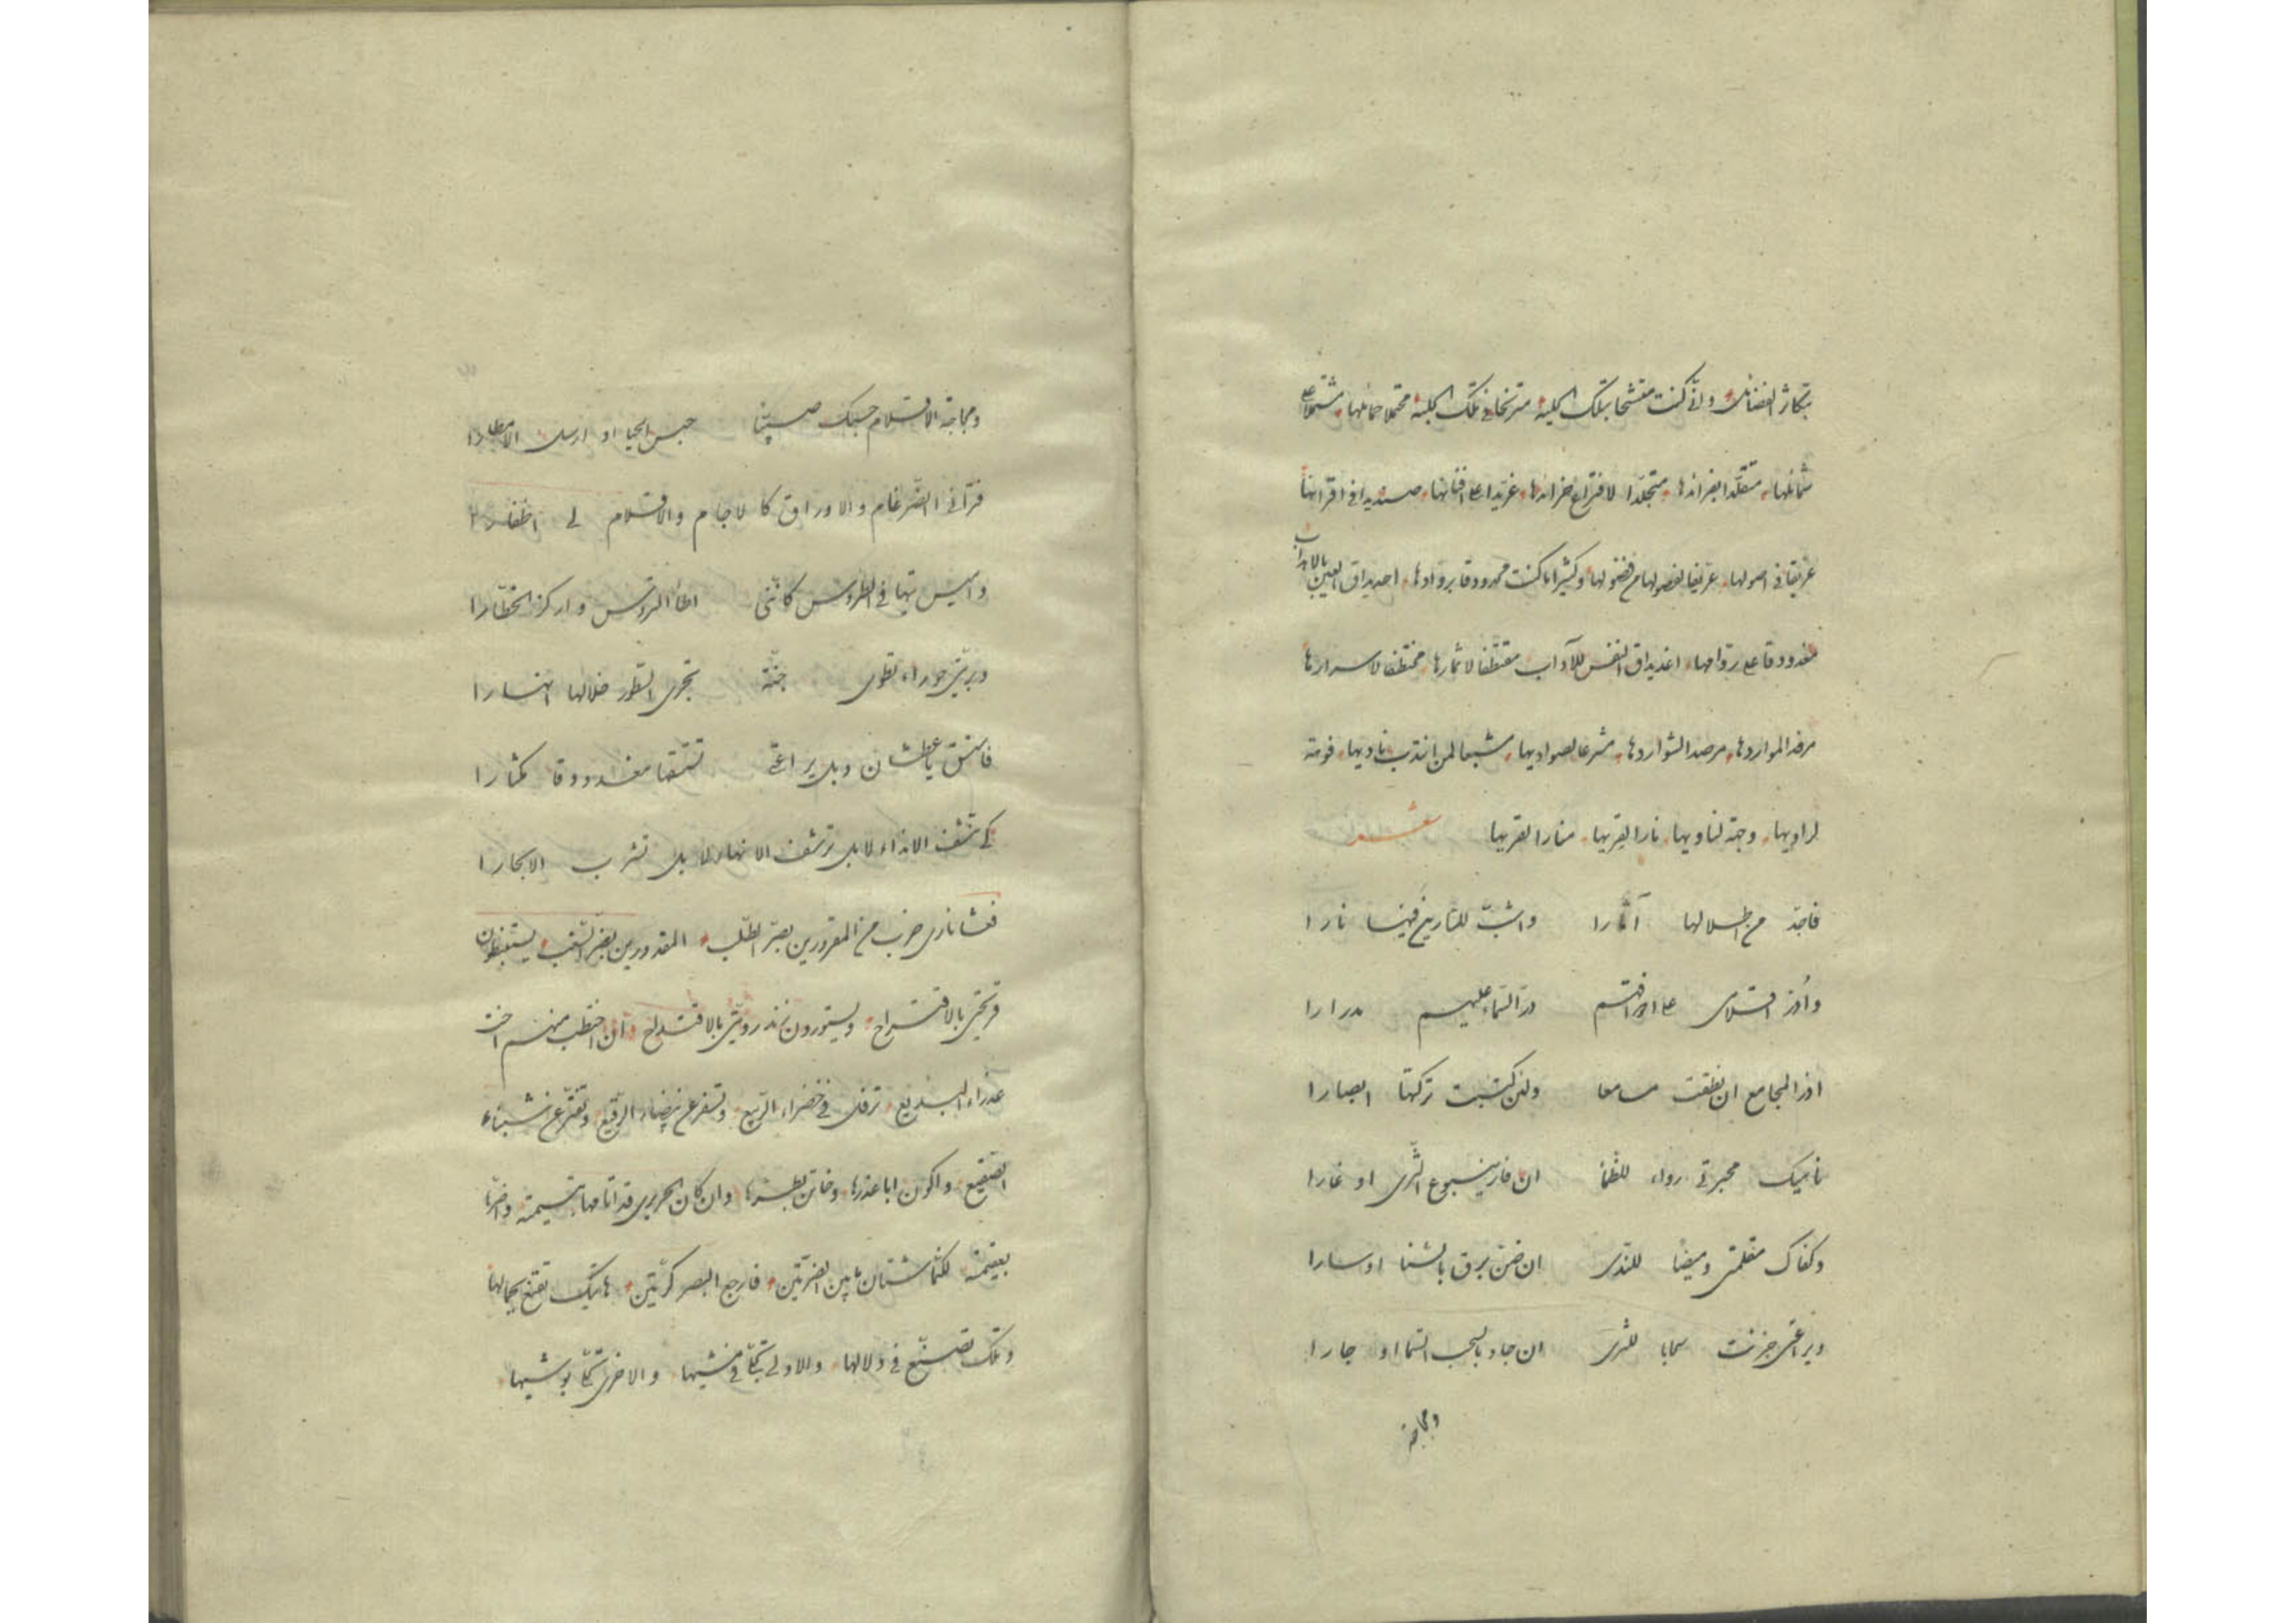 بتكاثر الفضائل، وانّي كنت متشحا بتلك الحلية، مترنحا في تلك الحلبة، محتملا حمائلها، مشتملا على
شمائلها، متقلّدا بفرائدها، متجلّدا لافتراع خرائدها، غرّيدا على افنانها، صنديدا في اقرانها
عريقا في اصولها، عرّيفا بفصولها من فضولها، وكثيرا ما كنت محدودقا بروادها، احديداق العين بالاهداب
مغدودقا على روّامها، اغديداق النفس للآداب، مقتطفا لاثمارها، مختطفا لاسرارها
مرفد المواردها، مرصد الشواردها، مشرعا لصواديها، مشبعا لمن انتدب ناديها، فومة
لراويها، وجنّة لناويها، نارا لقريها، منارا لقريها شعر
فاجدّ من اطلالها آثارا واشبّ للتاريخ فيها نارا
وادرّ اقلامى على اوراقهم درّ السّماء عليهم مدرارا
اذر المجامع ان نطقت مسامعا ولئن كتبت تركتها ابصارا
ناهيك محبرتي رواء للظما ان فار ينبوع الثّرى او غارا
وكفاك مقلمتى وميضا للندّى ان ضنّ برق بالسنا او سارا
ويراعتى خزنت سحابا للثرى ان جاد بالسحب السّما او جارا
ومجاجة
ومجاجة الاقلام حسبك صيّبا حبس الحيا او ارسل الامطارا
فترانى الضّرغام والاوراق كالآجام والاقلام لى اظفارا
واميس تيها في الطروس كانّنى اطأ التروس واركز الخطّارا
وبريّتى حوراء تطوى جنّة تجرى السّطور خلالها انهارا
فاستق يا عطشان وبل يراعتى تستسقها مغدودقا مكثارا
كى تنشف الانداء لا بل ترشف الانهار لا بل تشرب الابحارا
فعشا نارى ضرب من المقرورين بصرّ الطّلب، المقدورين بضرّ السّغب، يستنبطون
قريحتى بالاقتراح، ويستورون زند رويّتى بالاقتداح، وان اختطب منهم اخت
عذراء البديع، ترفل في خضراء الرّبيع، وتسفر عن بيضاء الرّقيع، وتفترّ عن شنباء
الصّقيع، واكون ابا عذرها، وخاتن بظرها، وان كان الحريرى قد اتامها بتيمته، واضرّها
بعقيمته، لكنّما شتّان ما بين الضرّتين، فارجع البصر كرّتين، هاتيك تقنع بجمالها
وتلك تصنّع في دلالها، والاولى تجلّى في مشيها، والاخرى تحلّى بوشيها،